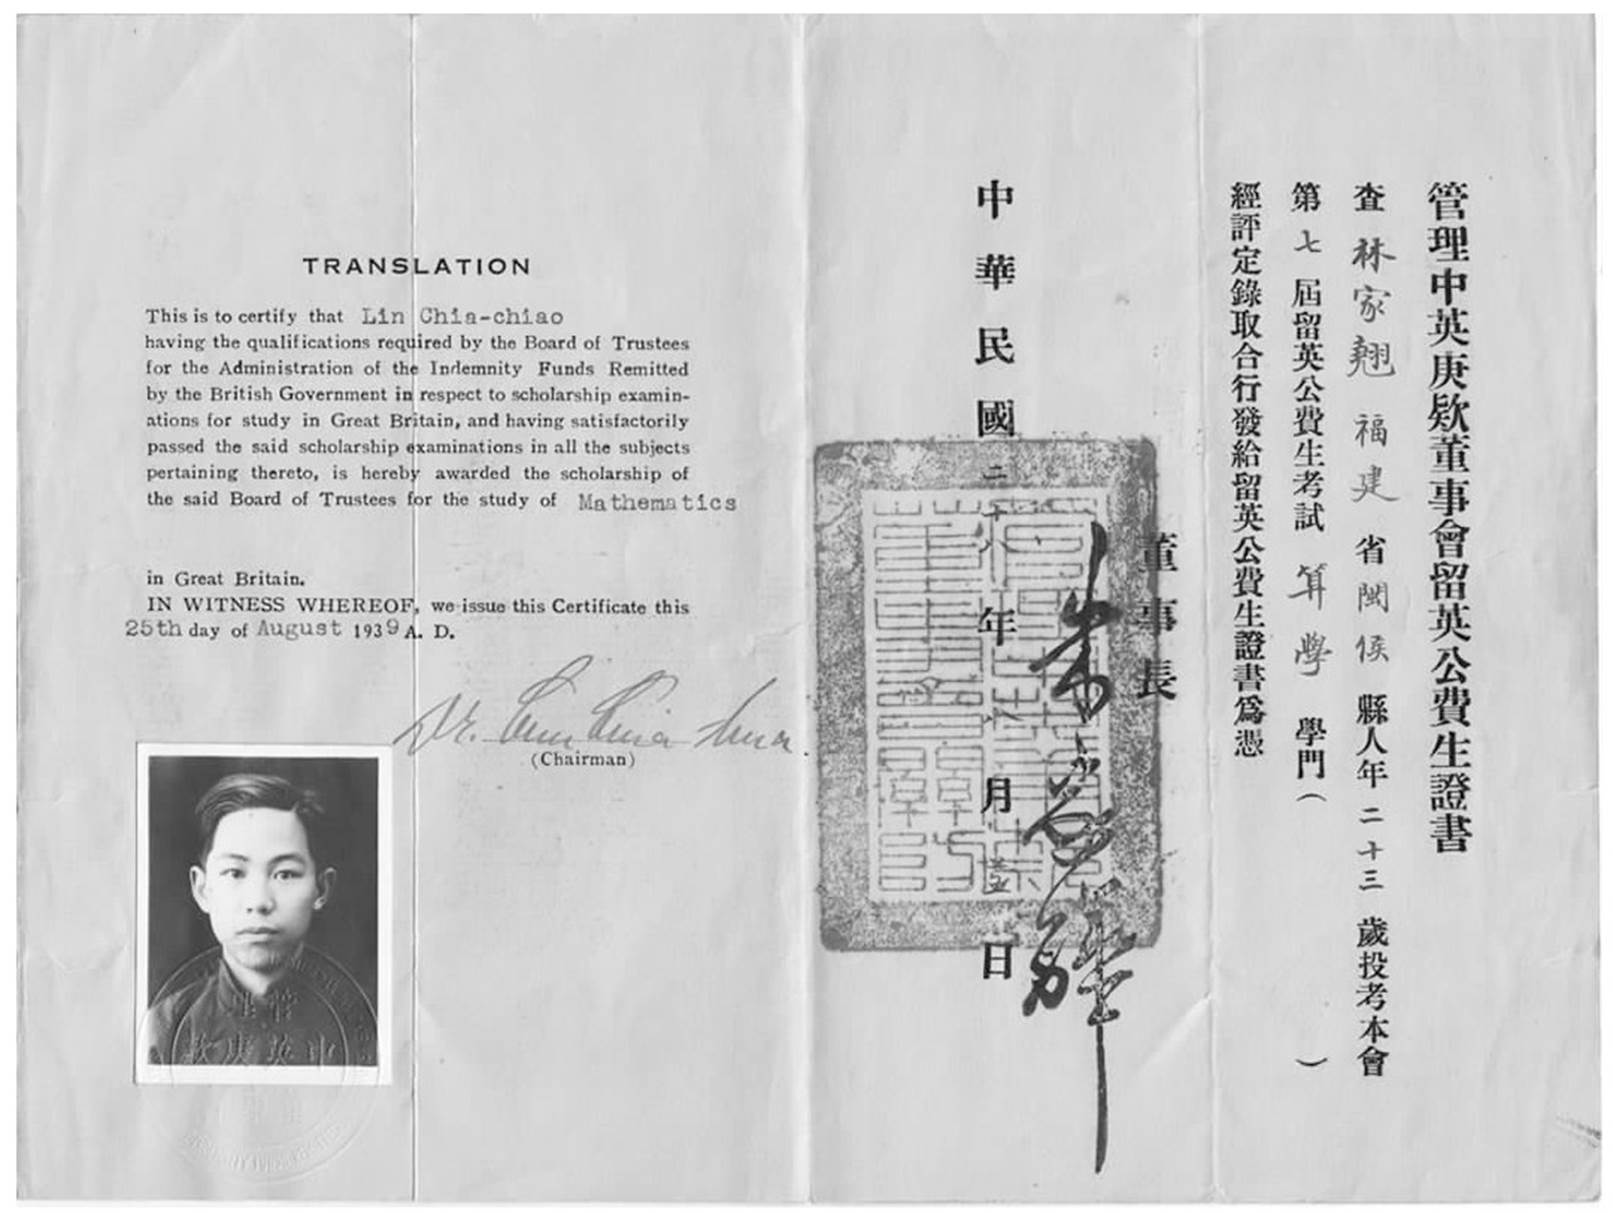 管理中英庚款董事會留英公費生證書
查林家翹福建省閩侯縣人年二十三歲投考本會
第七屆留英公費生考試算學學門（　）
經評定錄取合行發給留英公費生證書爲憑
董事長
朱家驊
中華民國二十八年八月 日
TRANSLATION
This is to certify that Lin Chia-chiao
having the qualifications required by the Board of Trustees
for the Administration of the Indemnity Funds Remitted
by the British Government in respect to scholarship examin-
ations for study in Great Britain, and having satisfactorily
passed the said scholarship examinations in all the subjects
pertaining thereto, is hereby awarded the scholarship of
the said Board of Trustees for the study of Mathematics
in Great Britain.
IN WITNESS WHEREOF, we issue this Certificate this
25th day of August 1939 A. D.
Dr. Chu Chia-hua.
(Chairman)
管理
中英庚款